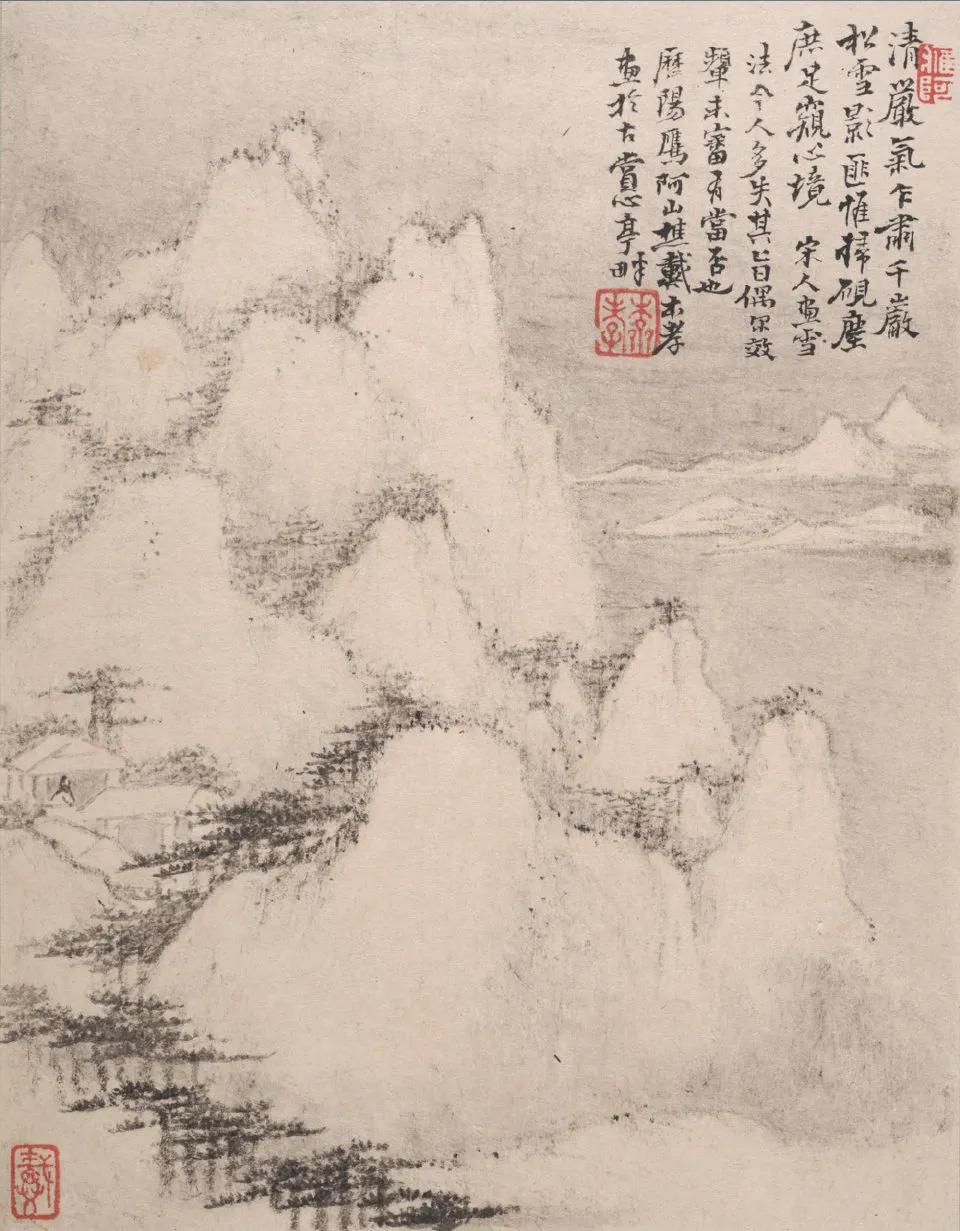 清巖氣乍肅千巖
松雪影匪惟掃硯塵
庶足窺心境 宋人畫雪
法今人多失其旨偶爾效
顰未審有當否也
歷陽鷹阿山樵戴本孝
畫於古賞心亭畔
鷹阿
本孝
戴